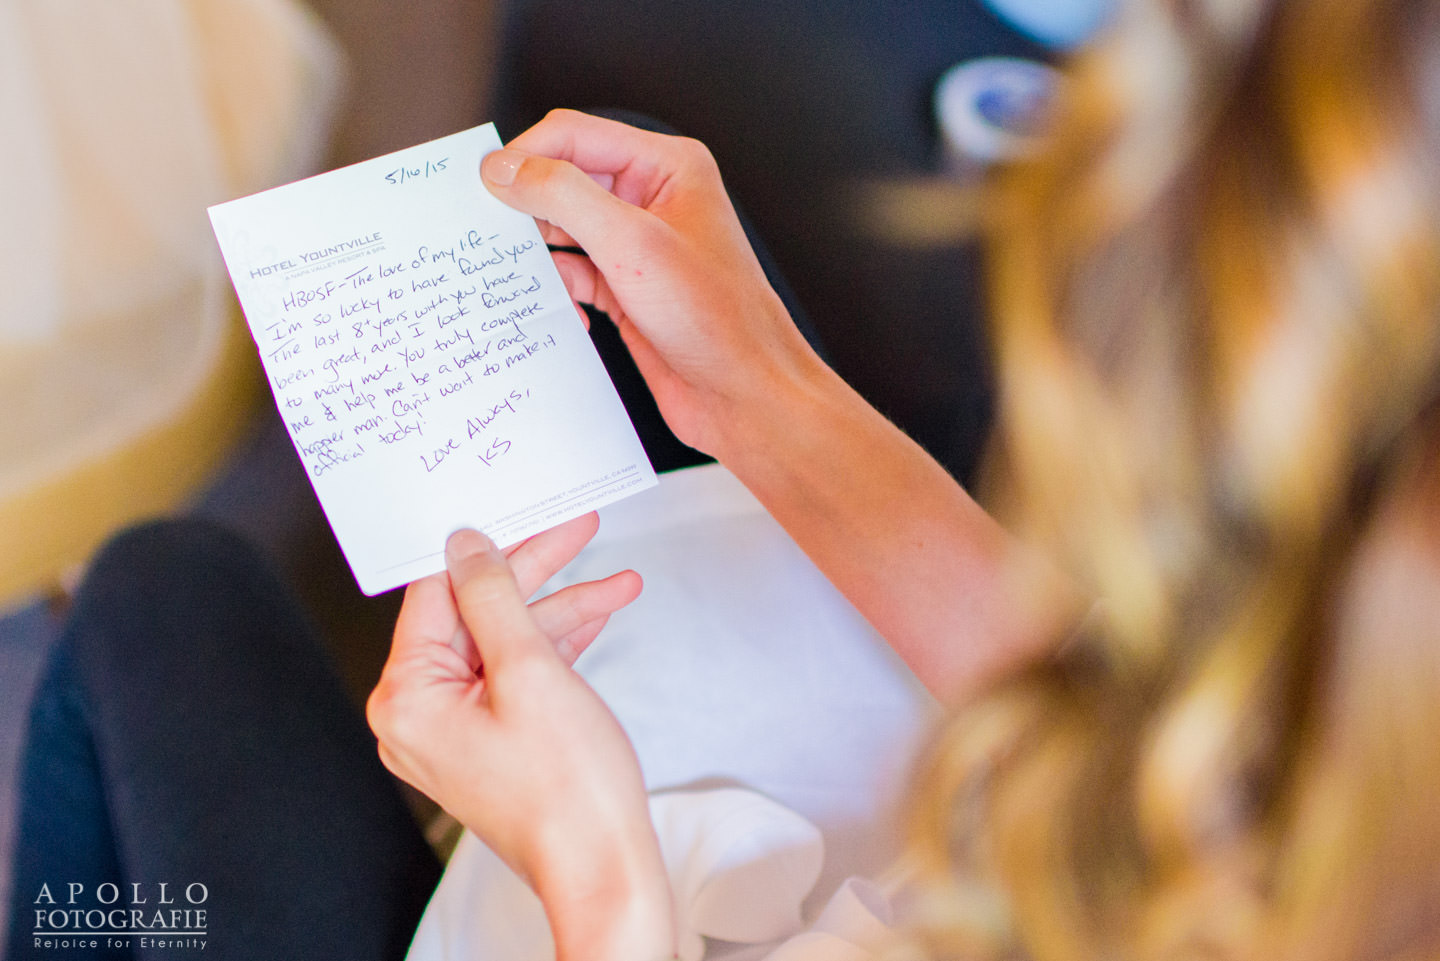 5/16/15
HOTEL YOUNTVILLE
A NAPA VALLEY RESORT & SPA
HBOSF-The love of my life-
I'm so lucky to have found you.
The last 8+ years with you have
been great, and I look forward
to many more. You truly complete
me & help me be a better and
happier man. Can't wait to make it
official today!
Love Always,
KS
WASHINGTON STREET, YOUNTVILLE, CA
WWW.HOTELYOUNTVILLE.COM
APOLLO
FOTOGRAFIE
Rejoice for Eternity